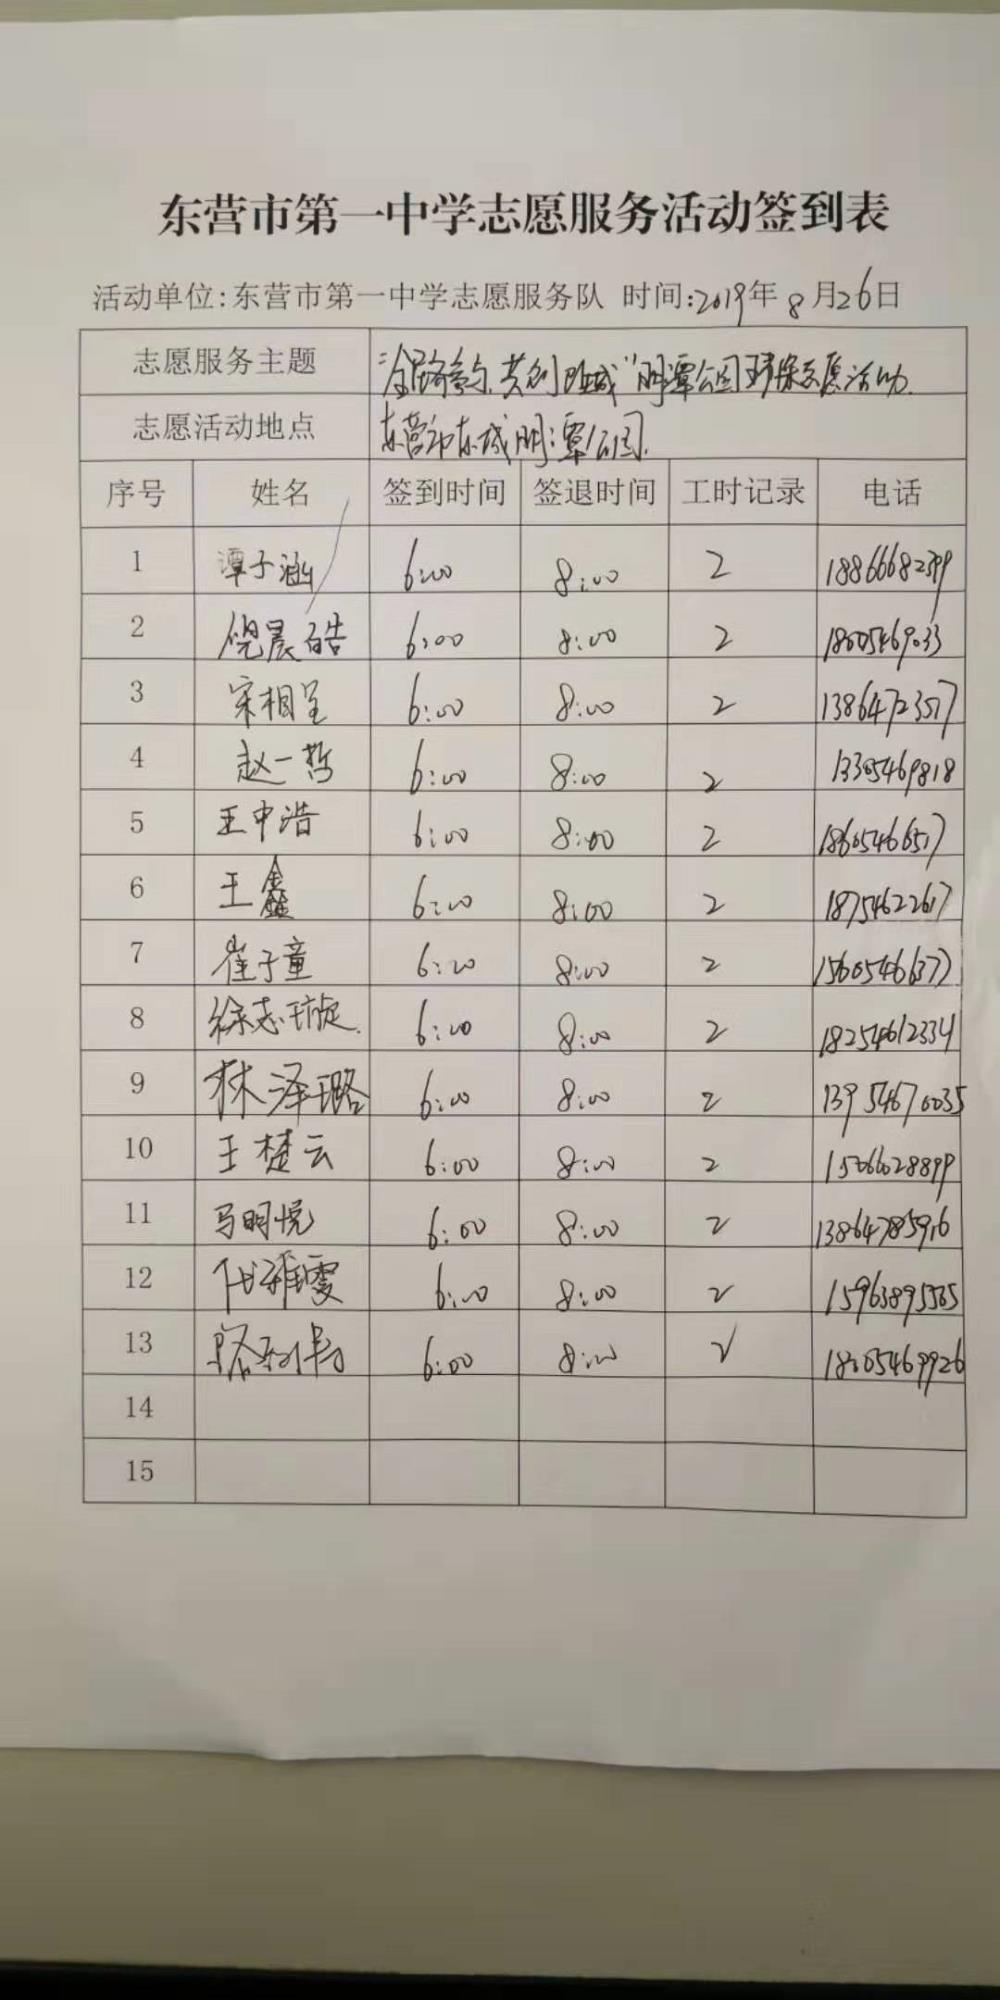 东营市第一中学志愿服务活动签到表
活动单位:东营市第一中学志愿服务队 时间:2019年8月26日
志愿服务主题 "全民参与,共创" 明潭公园环保志愿活动.
志愿活动地点 东营市东城明潭公园.
序号 姓名 签到时间 签退时间 工时记录 电话
1 谭子涵 6:00 8:00 2
2 倪晨皓 6:00 8:00 2 18605469033
3 宋相呈 6:00 8:00 2 13864723517
4 赵一哲 6:00 8:00 2 13305469818
5 王中浩 6:00 8:00 2 18605466517
6 王鑫 6:00 8:00 2 18754622617
7 崔子童 6:00 8:00 2 15605466377
8 徐志璇. 6:00 8:00 2 18254612334
9 林泽璐 6:00 8:00 2 13954670035
10 王楚云 6:00 8:00 2 15066028899
11 马明悦 6:00 8:00 2 13864785916
12 代雅雯 6:00 8:00 2 15963895535
13 6:00 8:00 2 18605469926
14
15